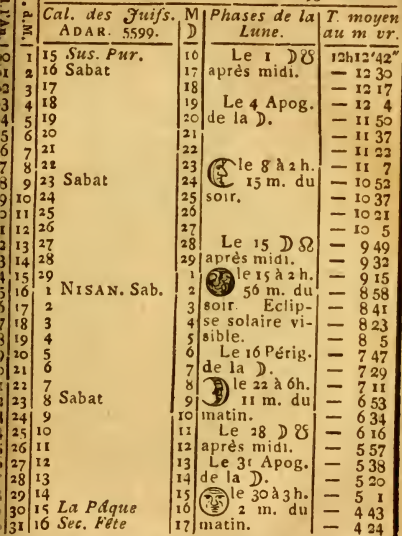 d. M. Cal. des Juifs. M Phases de la T. moyen
ADAR. 5599. D Lune. au m vr.
1 15 Sus. Pur. 16 Le 1 ☽☋ 12h12'42"
2 16 Sabat 17 après midi. — 12 30
3 17 18 — 12 17
4 18 19 Le 4 Apog. — 12 4
5 19 20 de la ☽. — 11 50
6 20 21 — 11 37
7 21 22 — 11 22
8 22 23 le 8 à 2 h. — 11 7
9 23 Sabat 24 15 m. du — 10 52
10 24 25 soir. — 10 37
11 25 26 — 10 21
12 26 27 — 10 5
13 27 28 Le 15 ☽☊ — 9 49
14 28 29 après midi. — 9 32
15 29 1 le 15 à 2 h. — 9 15
16 1 NISAN. Sab. 2 56 m. du — 8 58
17 2 3 soir. Eclip- — 8 41
18 3 4 se solaire vi- — 8 23
19 4 5 sible. — 8 5
20 5 6 Le 16 Périg. — 7 47
21 6 7 de la ☽. — 7 29
22 7 8 le 22 à 6h. — 7 11
23 8 Sabat 9 11 m. du — 6 53
24 9 10 matin. — 6 34
25 10 11 Le 28 ☽☋ — 6 16
26 11 12 après midi. — 5 57
27 12 13 Le 31 Apog. — 5 38
28 13 14 de la ☽. — 5 20
29 14 15 le 30 à 3h. — 5 1
30 15 La Pâque 16 2 m. du — 4 43
31 16 Sec. Fête 17 matin. — 4 24